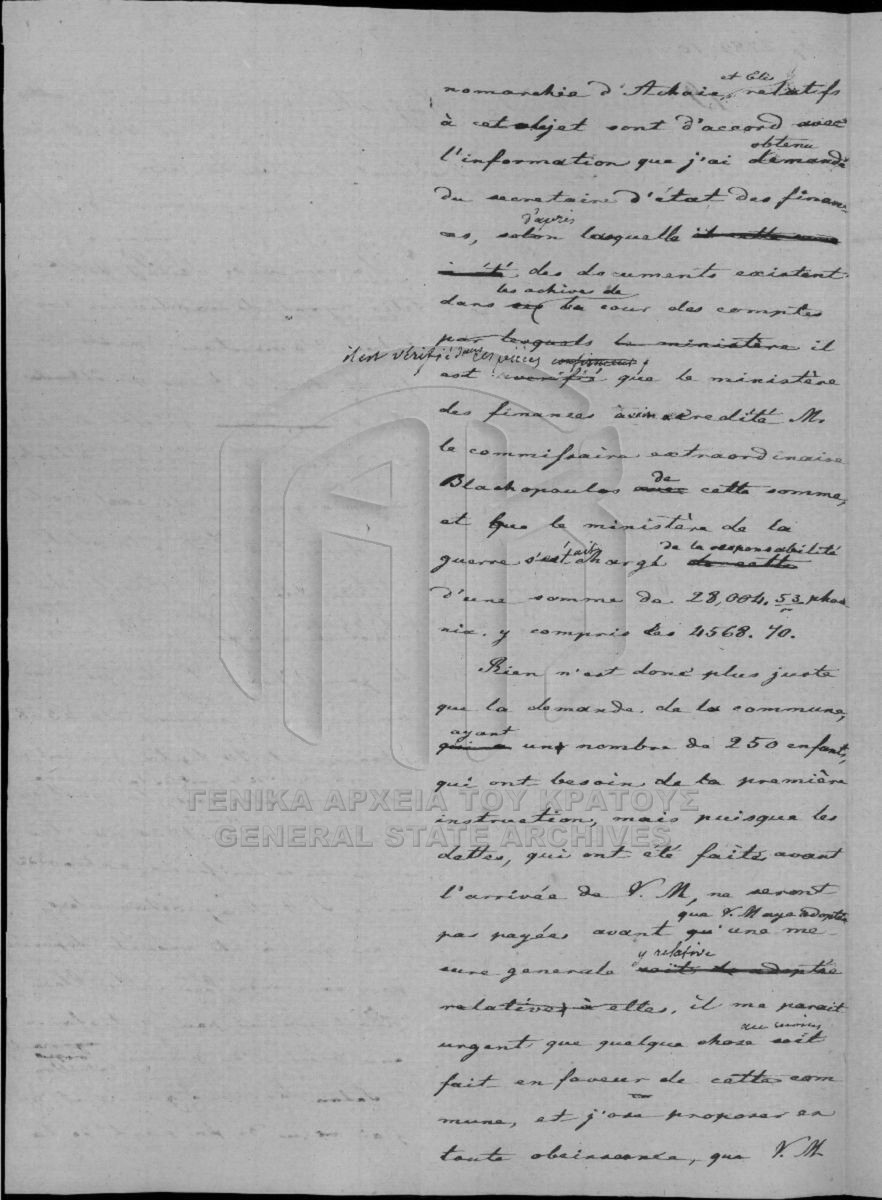 et Elide
nomarchie d'Achaie, relatifs
à cet objet sont d'accord avec
obtenu
l'information que j'ai demandé
du secretaire d'état des finan-
d'après
ces, selon lasquelle il cette
a été des documents existent
les achives de
dans la cour des comptes
par lesquels le ministère il
il est vérifié d'après ces pièces confirment
est verifié que le ministère
des finances accredité Mr
le commissaire extraordinaire
de
Blachopoulos avec cette somme,
et que le ministère de la
fait de la responsabilité
guerre s'est chargé de cette
d'une somme de 28,004.53 phoe
nix. y compris les 4568.70.
Rien n'est donc plus juste
que la demande de la commune,
ayant
qui a un nombre de 250 enfants,
qui ont besoin de la première
instruction, mais puisque les
dettes, qui ont été faites avant
l'arrivée de V. M, ne seront
que V. M aye adoptée
pas payées avant qu'une me-
y relative
sure generale soit adoptée
relative à elles, il me parait
au moins
urgent que quelque chose soit
fait en faveur de cette com
mune, et j'ose proposer en
toute obeissance, que V. M
ΓΕΝΙΚΑ ΑΡΧΕΙΑ ΤΟΥ ΚΡΑΤΟΥΣ
GENERAL STATE ARCHIVES